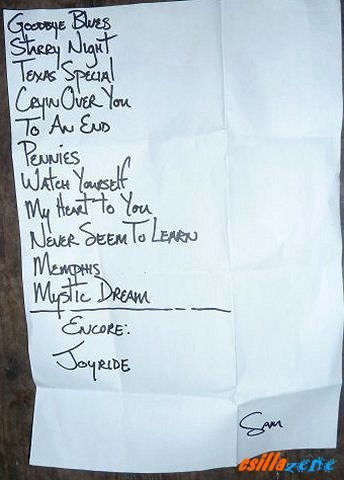 Goodbye Blues
Starry Night
Texas Special
Cryin Over You
To An End
Pennies
Watch Yourself
My Heart To You
Never Seem To Learn
Memphis
Mystic Dream
Encore:
Joyride
Sam
csillazene